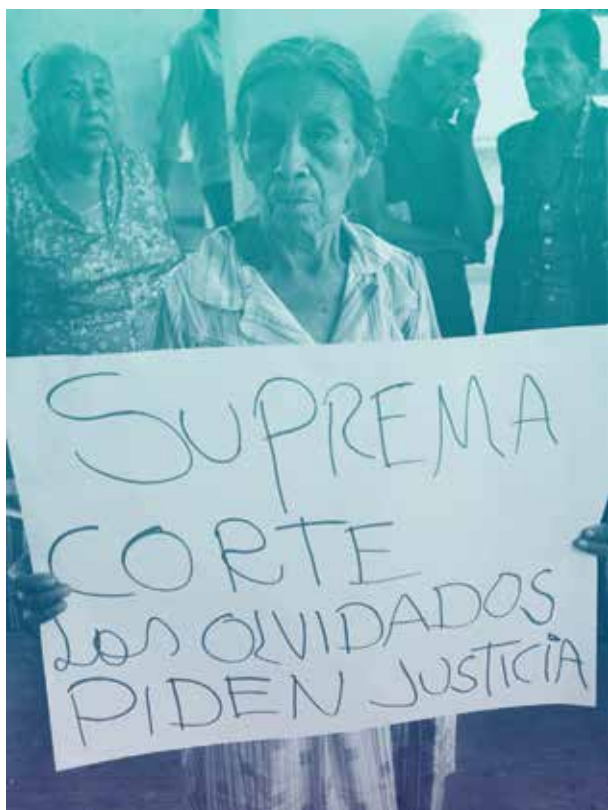 SUPREMA
CORTE
LOS OLVIDADOS
PIDEN JUSTICIA